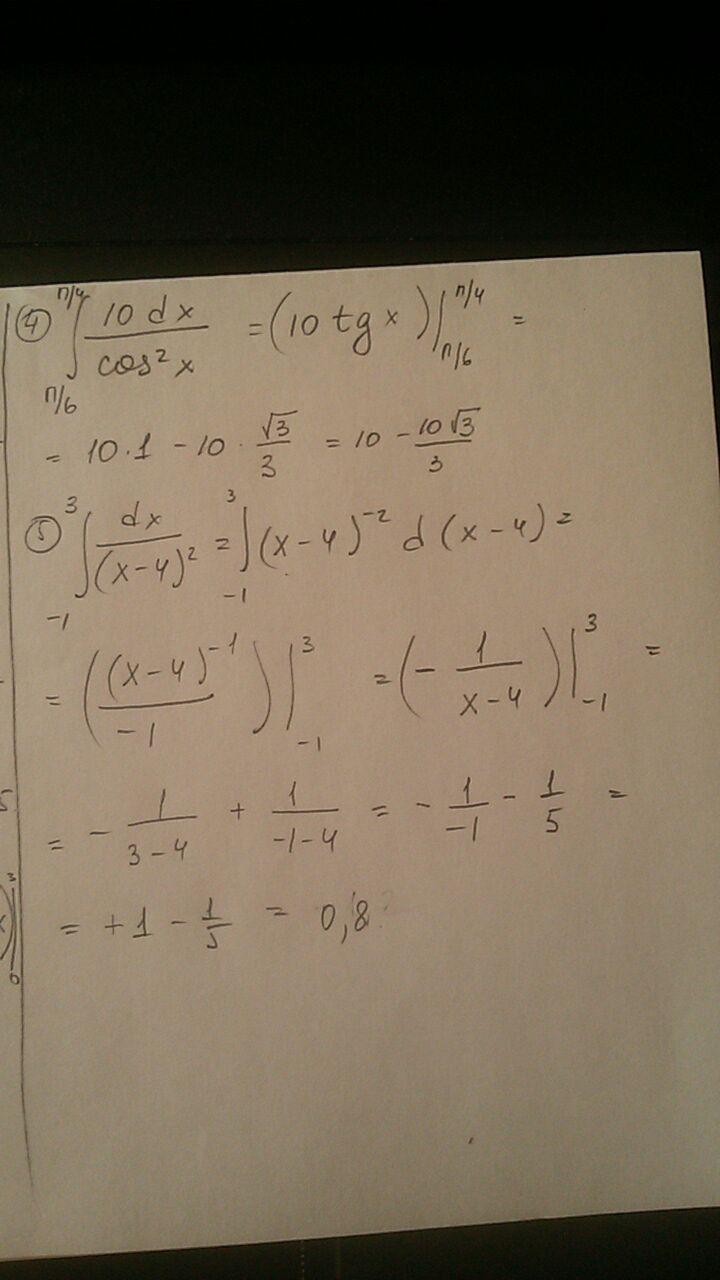 ④ ∫_{π/6}^{π/4} 10 dx / cos² x = (10 tg x)|_{π/6}^{π/4} =
= 10 · 1 - 10 · √3/3 = 10 - 10√3/3
⑤ ∫_{-1}^{3} dx / (x-4)² = ∫_{-1}^{3} (x-4)^{-2} d(x-4) =
= ((x-4)^{-1} / -1)|_{-1}^{3} = (- 1/(x-4))|_{-1}^{3} =
= - 1/(3-4) + 1/(-1-4) = - 1/-1 - 1/5 =
= +1 - 1/5 = 0,8